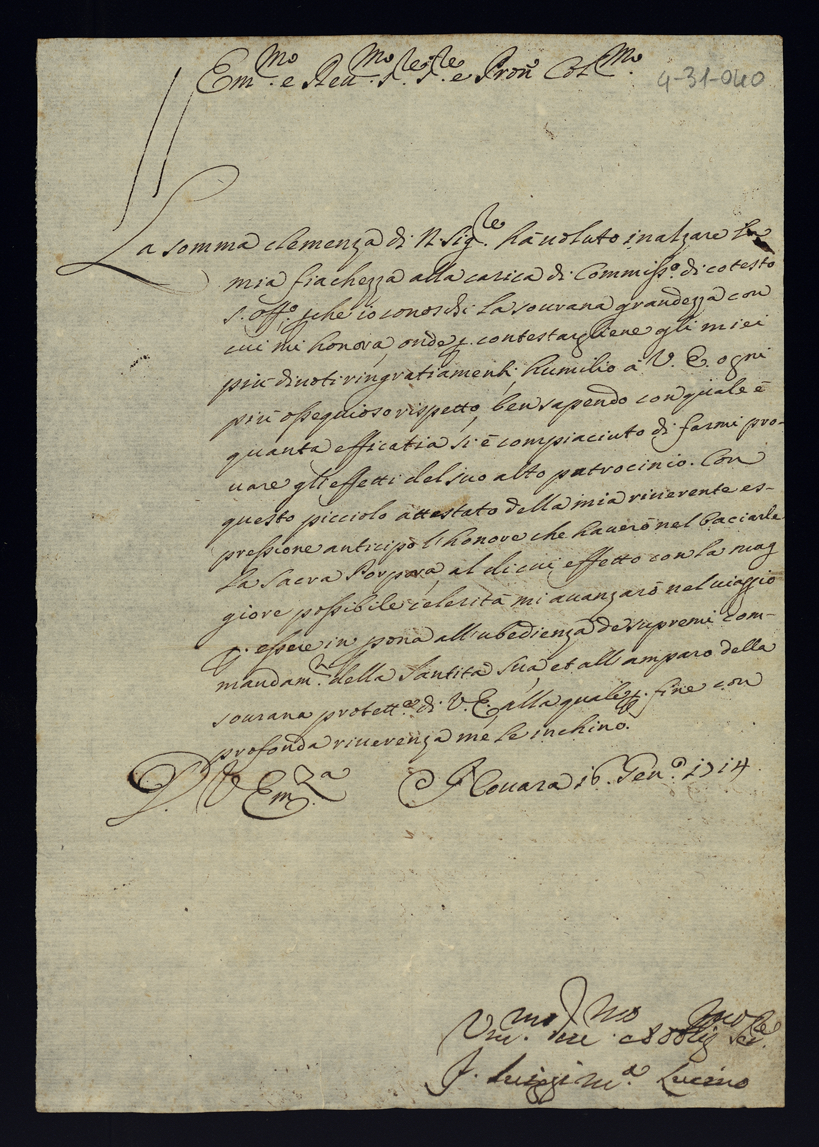 Em.mo e Reu.mo S.re S.re e Pron Col.mo
4-31-040
La somma clemenza di N. Sig.re hà uoluto inalzare la
mia fiachezza alla carica di Commiss.o di cotesto
s. Off.o, che io conoschi la sourana grandezza con
cui mi honora, onde p. contestargliene gli miei
più diuoti ringratiamenti, humilio à V. E. ogni
più ossequioso rispetto, ben sapendo con quale è
quanta efficatia si è compiaciuto di farmi pro-
uare gli effetti del suo alto patrocinio. Con
questo picciolo attestato della mia riuerente es-
pressione anticipo l'honore che hauerò nel baciarle
La Sacra Porpora, al di cui effetto con la mag
giore possibile celerità mi auanzarò nel uiaggio
p. essere in pona all'ubedienza de supremi com-
mandam.ti della Santità Sua, et all'amparo della
sourana protett.e di V. E. alla quale p. fine con
profonda riuerenza me le inchino.
D. V. Em.za Nouara 16. Gen.o 1714
Vm.mo Deu.mo et Obblig.mo Ser.re
F. Luigi M.a Lucino